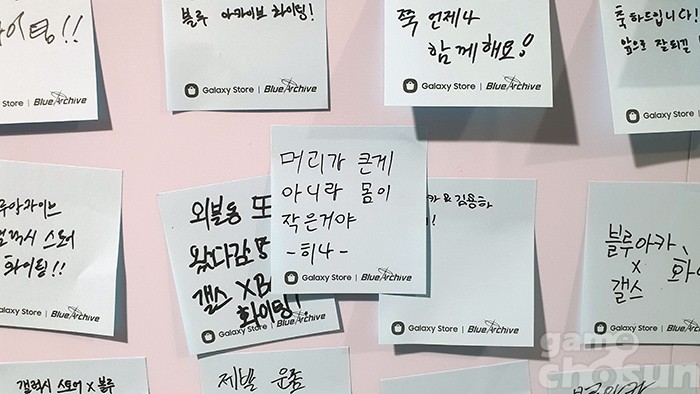 파이팅!!
Store | Blue Archive
블루 아카이브 화이팅!
Galaxy Store | Blue Archive
쭉 언제나
함께해요!
Galaxy Store | Blue Archive
앞으로 잘되길
Galaxy Store
화이팅!!
Galaxy Store | Blue Archive
외블동 또
왔다감
갤스 X
화이팅!
Galaxy Store | Blue Archive
머리가 큰게
아니라 몸이
작은거야
-히나-
Galaxy Store | Blue Archive
카 & 김용하
!
Galaxy Store | Blue Archive
블루아카
X
갤스
Galaxy Store | Blue Archive
갤럭시 스토어 X 블루
제발 운좀
game
chosun